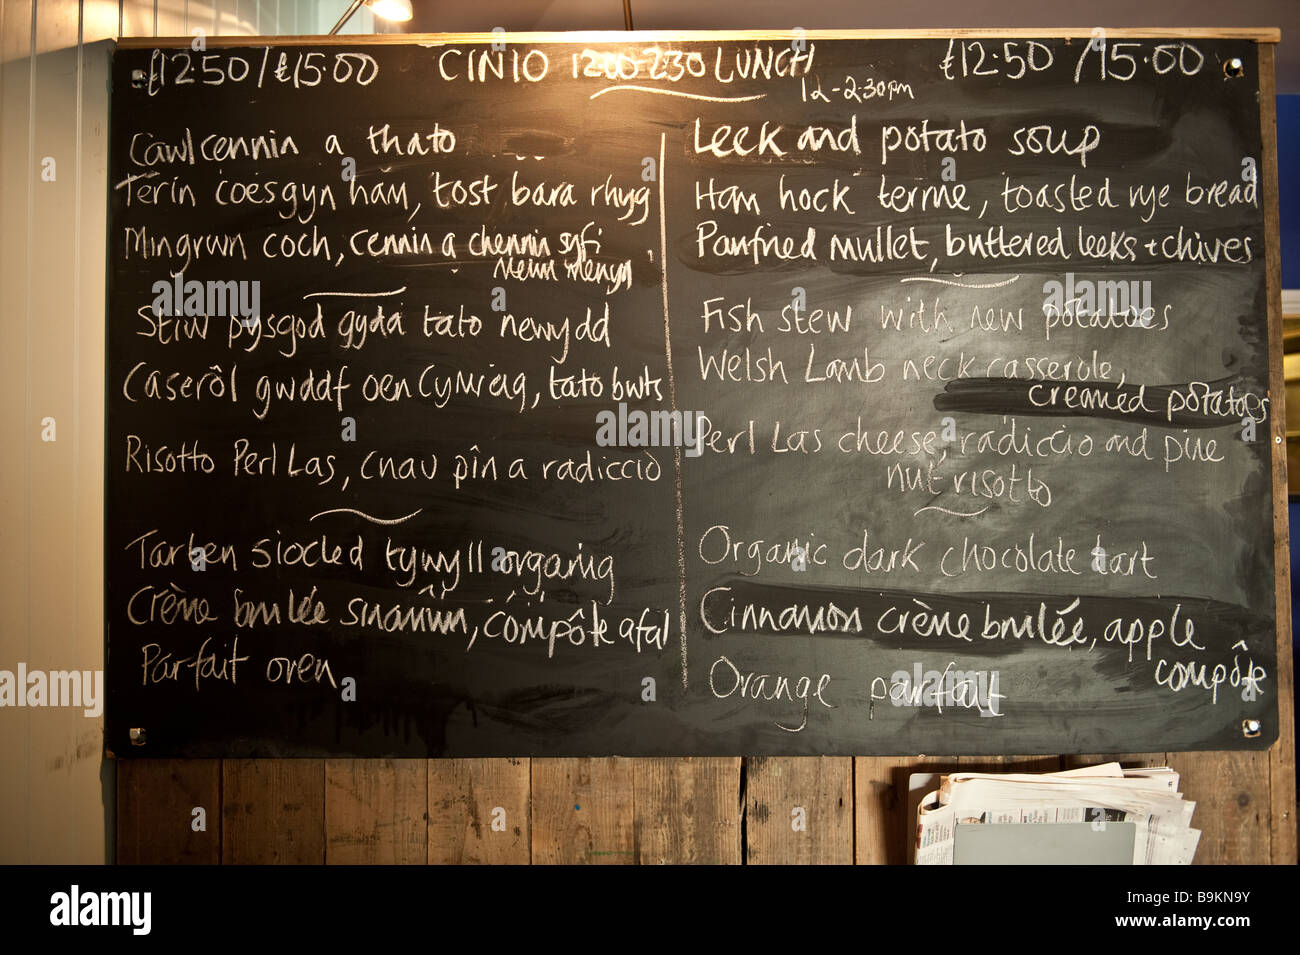 £12.50/£15.00 CINIO 12.00-2.30 LUNCH £12.50/15.00
12-2.30pm
Cawl cennin a thato
Terin coesgyn ham, tost bara rhyg
Mingrwn coch, cennin a chennin syfi
mewn menyn
Stiw pysgod gyda tato newydd
Caserôl gwddf oen Cymreig, tato bwts
Risotto Perl Las, cnau pîn a radiccio
Tarten siocled tywyll organig
Crème brulée sinamwn, compôte afal
Parfait oren
Leek and potato soup
Ham hock terrine, toasted rye bread
Panfried mullet, buttered leeks + chives
Fish stew with new potatoes
Welsh Lamb neck casserole,
creamed potatoes
Perl Las cheese, radiccio and pine
nut risotto
Organic dark chocolate tart
Cinnamon crème brulée, apple
compôte
Orange parfait
alamy
Image ID: B9KN9Y
www.alamy.com